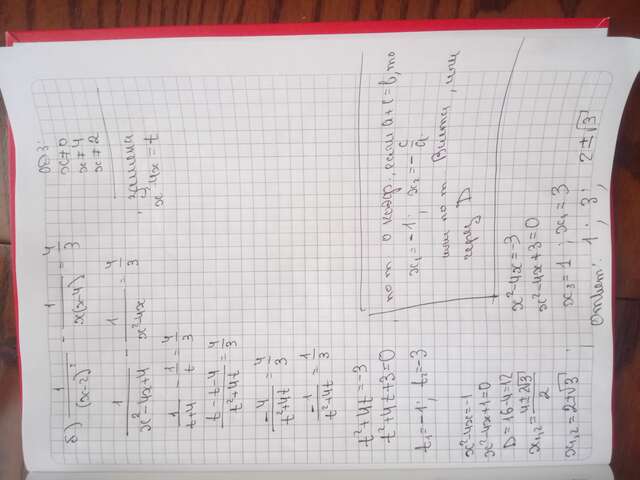 б) 1/(x-2)² - 1/x(x-4) = 4/3
ОДЗ:
x≠0
x≠4
x≠2
1/x²-4x+4 - 1/x²-4x = 4/3
, замена
x²-4x=t
1/t+4 - 1/t = 4/3
t-t-4/t²+4t = 4/3
-4/t²+4t = 4/3
-1/t²+4t = 1/3
t²+4t=-3
t²+4t+3=0
t₁=-1; t₂=-3
по т о коэф.: если a+c=b, то
x₁=-1; x₂=-c/a
или по т Виетта, или
через D
x²-4x=-1
x²-4x+1=0
D=16-4=12
x₁,₂=4±2√3/2
x₁,₂=2±√3;
x²-4x=-3
x²-4x+3=0
x₃=1; x₄=3
Ответ: 1; 3; 2±√3